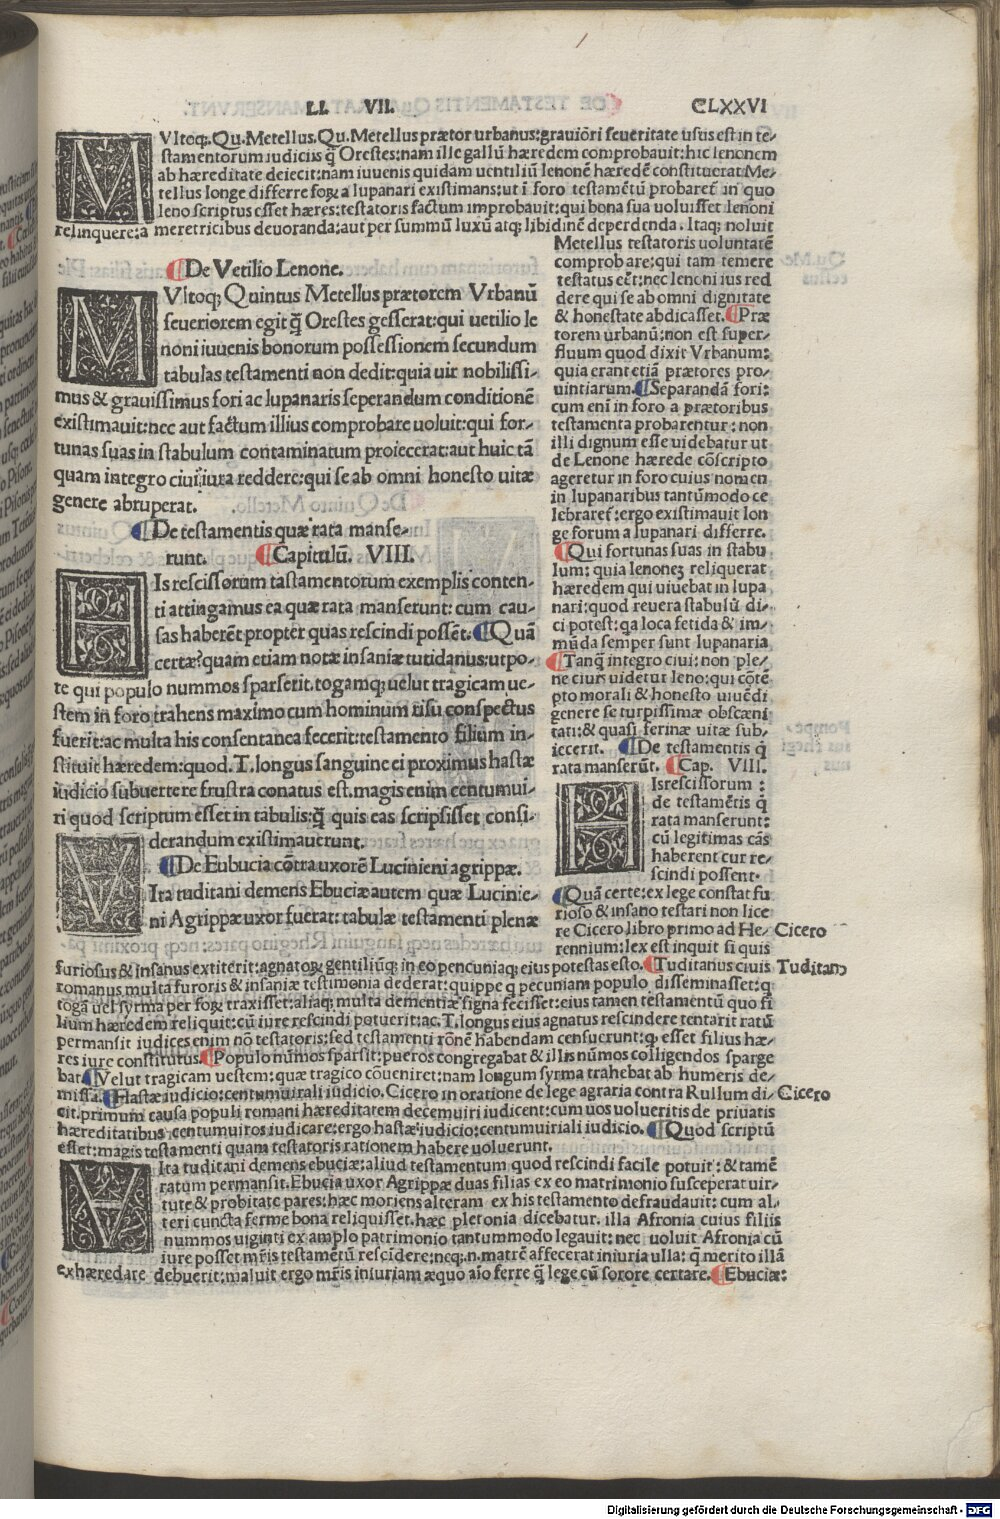 LI. VII. CLXXVI
MVltoq;. Qu. Metellus. Qu. Metellus prætor urbanus: grauiōri seueritate usus est in te-
stamentorum iudiciis q̄ Orestes: nam ille gallū hæredem comprobauit: hic lenonem
ab hæreditate deiecit: nam iuuenis quidam uentiliū lenonē hæredē constituerat Me-
tellus longe differre foꝝ a lupanari existimans: ut ī foro testamētū probaret̄ in quo
leno scriptus esset hæres: testatoris factum improbauit: qui bona sua uoluisset lenoni
relinquere: a meretricibus deuoranda: aut per summū luxū atq; libidinē deperdenda. Itaq; noluit
Metellus testatoris uoluntatē
comprobare: qui tam temere
testatus eēt: nec lenoni ius red
dere qui se ab omni dignitate
& honestate abdicasset. ¶Præ
torem urbanū: non est super-
fluum quod dixit Vrbanum:
quia erant etiā prætores pro-
uintiarum. ¶Separandā fori:
cum eni in foro a prætoribus
testamenta probarentur: non
illi dignum esse uidebatur ut
de Lenone hærede cōscripto
ageretur in foro cuius nomen
in lupanaribus tantūmodo ce
lebraret̄: ergo existimauit lon
ge forum a lupanari differre.
¶Qui fortunas suas in stabu
lum: quia lenoneȝ reliquerat
hæredem qui uiuebat in lupa
nari: quod reuera stabulū di-
ci potest: qa loca fetida & im-
mūda semper sunt lupanaria
¶Tanq̄ integro ciui: non ple-
ne ciuis uidetur leno: qui cōtē
pto morali & honesto uiuēdi
genere se turpissimæ obscæni
tati: & quasi ferinæ uitæ sub-
iecerit. ¶De testamentis q̄
rata manserūt. ¶Cap. VIII.
HIs rescissorum:
de testamētis q̄
rata manserunt:
cū legitimas cās
haberent cur re-
scindi possent.
¶Quā certe: ex lege constat fu
rioso & insano testari non lice
re Cicero libro primo ad He- Cicero
rennium: lex est inquit si quis
¶De Vetilio Lenone.
MVltoq; Quintus Metellus prætorem Vrbanū
seueriorem egit q̄ Orestes gesserat: qui uetilio le
noni iuuenis bonorum possessionem secundum
tabulas testamenti non dedit: quia uir nobilissi-
mus & grauissimus fori ac lupanaris seperandum conditionē
existimauit: nec aut factum illius comprobare uoluit: qui for-
tunas suas in stabulum contaminatum proiecerat: aut huic tā
quam integro ciui iura reddere: qui se ab omni honesto uitæ
genere abruperat.
¶De testamentis quæ rata manse-
runt. ¶Capitulū. VIII.
HIs rescissorum tastamentorum exemplis conten-
ti attingamus ea quæ rata manserunt: cum cau-
sas haberēt propter quas rescindi possēt. ¶Quā
certæ? quam etiam notæ insaniæ tutidanus: utpo-
te qui populo nummos sparserit. togamq; uelut tragicam ue-
stem in foro trahens maximo cum hominum risu conspectus
fuerit: ac multa his consentanea fecerit: testamento filium in-
stituit hæredem: quod. T. longus sanguine ei proximus hastæ
iudicio subuertere frustra conatus est. magis enim centumui-
ri quod scriptum esset in tabulis: q̄ quis eas scripsisset consi-
derandum existimauerunt.
¶De Eubucia cōtra uxorē Lucinieni agrippæ.
VIta tuditani demens Ebuciæ autem quæ Lucinie-
ni Agrippæ uxor fuerat: tabulæ testamenti plenæ
furiosus & insanus extiterit: agnatoꝝ gentiliūq; in eo pencuniaq; eius potestas esto. ¶Tuditanus ciuis Tuditan⁹
romanus multa furoris & insaniæ testimonia dederat: quippe q pecuniam populo disseminasset: q
togā uel syrma per foꝝ traxisset: aliaq; multa dementiæ signa fecisset: eius tamen testamentū quo fi
lium hæredem reliquit: cū iure rescindi potuerit: ac. T. longus eius agnatus rescindere tentarit ratū
permansit iudices enim nō testatoris: sed testamenti rōnē habendam censucrunt: q. esset filius hæ-
res iure constitutus. ¶Populo nūmos sparsit: pueros congregabat & illis nūmos colligendos sparge
bat. ¶Velut tragicam uestem: quæ tragico cōueniret: nam longum syrma trahebat ab humeris de-
missa. ¶Hastæ iudicio: centumuirali iudicio. Cicero in oratione de lege agraria contra Rullum di- Cicero
cit. primum causa populi romani hæreditatem decemuiri iudicent: cum uos uolueritis de priuatis
hæreditatibus centumuiros iudicare: ergo hastæ iudicio: centumuiriali iudicio. ¶Quod scriptū
esset: magis testamenti quam testatoris rationem habere uoluerunt.
VIta tuditani demens ebuciæ: aliud testamentum quod rescindi facile potuit: & tamē
ratum permansit. Ebucia uxor Agrippæ duas filias ex eo matrimonio susceperat uir-
tute & probitate pares: hæc moriens alteram ex his testamento defraudauit: cum al-
teri cuncta ferme bona reliquisset. hæc pletonia dicebatur. illa Afronia cuius filiis
nummos uiginti ex amplo patrimonio tantummodo legauit: nec uoluit Afronia cū
iure posset mr̄is testamētū rescidere: neq;. n. matrē affecerat iniuria ulla: q̄ merito illā
exhæredare debuerit: maluit ergo mr̄is iniuriam æquo aīo ferre q̄ lege cū sorore certare. ¶Ebuciæ:
Digitalisierung gefördert durch die Deutsche Forschungsgemeinschaft - DFG